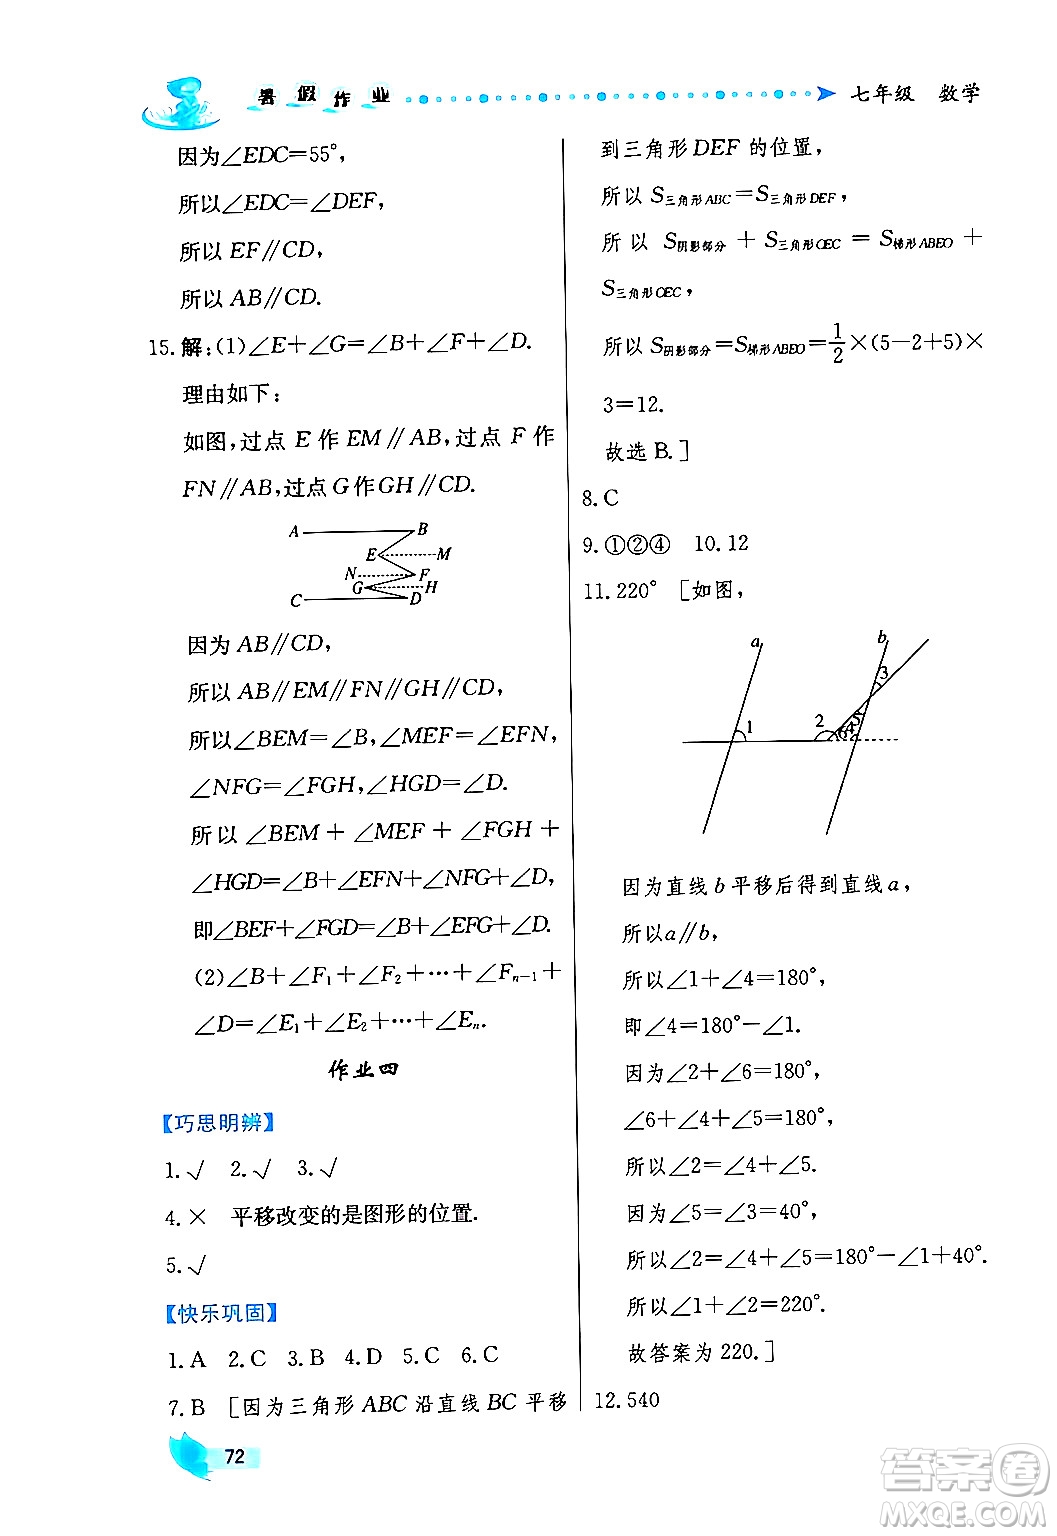 暑假作业
七年级 数学
因为∠EDC=55°,
所以∠EDC=∠DEF,
所以 EF∥CD,
所以 AB∥CD.
15.解:(1)∠E+∠G=∠B+∠F+∠D.
理由如下:
如图,过点 E 作 EM∥AB,过点 F 作
FN∥AB,过点G作GH∥CD.
A B
E M
N F
G H
C D
因为 AB∥CD,
所以 AB∥EM∥FN∥GH∥CD,
所以∠BEM=∠B,∠MEF=∠EFN,
∠NFG=∠FGH,∠HGD=∠D.
所以 ∠BEM + ∠MEF + ∠FGH +
∠HGD=∠B+∠EFN+∠NFG+∠D,
即∠BEF+∠FGD=∠B+∠EFG+∠D.
(2)∠B+∠F₁+∠F₂+…+∠Fₙ₋₁+
∠D=∠E₁+∠E₂+…+∠Eₙ.
作业四
【巧思明辨】
1.√ 2.√ 3.√
4.× 平移改变的是图形的位置.
5.√
【快乐巩固】
1.A 2.C 3.B 4.D 5.C 6.C
7.B [因为三角形 ABC 沿直线 BC 平移
到三角形 DEF 的位置,
所以 S三角形ABC=S三角形DEF,
所以 S阴影部分 + S三角形OEC = S梯形ABEO +
S三角形OEC,
所以 S阴影部分=S梯形ABEO=1/2×(5-2+5)×
3=12.
故选 B.]
8.C
9.①②④ 10.12
11.220° [如图,
a b
3
1 2 6 4 5
因为直线 b 平移后得到直线 a,
所以a∥b,
所以∠1+∠4=180°,
即∠4=180°-∠1.
因为∠2+∠6=180°,
∠6+∠4+∠5=180°,
所以∠2=∠4+∠5.
因为∠5=∠3=40°,
所以∠2=∠4+∠5=180°-∠1+40°.
所以∠1+∠2=220°.
故答案为 220.]
12.540
72
答案圈
MXQE.COM